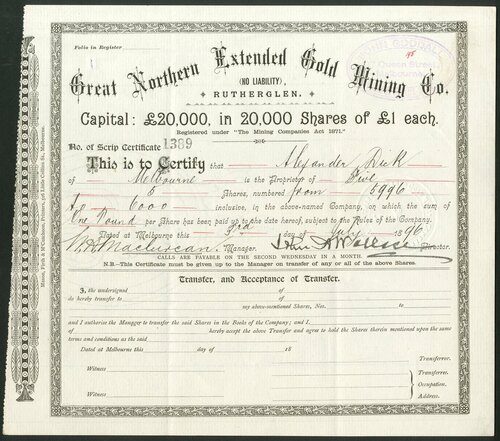 Folio in Register
Great Northern Extended Gold Mining Co.
(NO LIABILITY),
RUTHERGLEN.
Capital: £20,000, in 20,000 Shares of £1 each.
Registered under "The Mining Companies Act 1871."
No. of Scrip Certificate 1389
This is to Certify that Alexander Dick
of Melbourne is the Proprietor of Five
5 Shares, numbered from 5996
to 6000 inclusive, in the above-named Company, on which the sum of
One Pound per Share has been paid up to the date hereof, subject to the Rules of the Company.
Dated at Melbourne this 3rd day of July 1896
Manager. Director.
CALLS ARE PAYABLE ON THE SECOND WEDNESDAY IN A MONTH.
N.B.—This Certificate must be given up to the Manager on transfer of any or all of the above Shares.
Transfer, and Acceptance of Transfer.
I, the undersigned of
do hereby transfer to of
my above-mentioned Shares, Nos. to
and I authorise the Manager to transfer the said Shares in the Books of the Company; and I,
of hereby accept the above Transfer and agree to hold the Shares therein mentioned upon the same
terms and conditions as the said
Dated at Melbourne this day of 18
Witness Transferrer.
Witness Transferree.
Occupation.
Address.